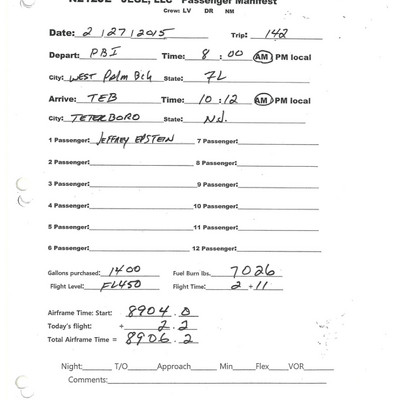 JEGE, LLC Passenger Manifest
Crew: LV DR NM
Date: 2/27/2015 Trip: 142
Depart: PBI Time: 8:00 AM PM local
City: WEST Palm Bch State: FL
Arrive: TEB Time: 10:12 AM PM local
City: TETERBORO State: NJ.
1 Passenger: JEFFREY EPSTEIN 7 Passenger:
2 Passenger: 8 Passenger:
3 Passenger: 9 Passenger:
4 Passenger: 10 Passenger:
5 Passenger: 11 Passenger:
6 Passenger: 12 Passenger:
Gallons purchased: 1400 Fuel Burn lbs. 7026
Flight Level: FL450 Flight Time: 2+11
Airframe Time: Start: 8904.0
Today's flight: + 2.2
Total Airframe Time = 8906.2
Night: T/O Approach Min Flex VOR
Comments: